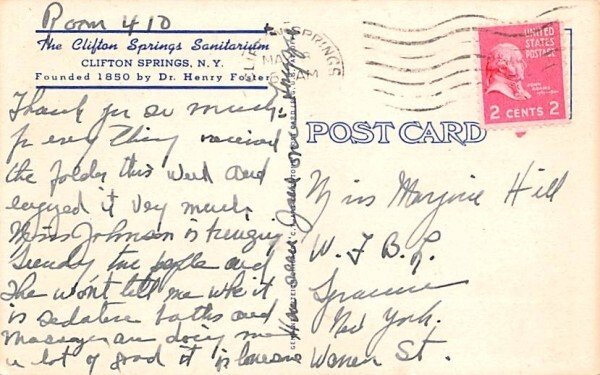 Room 410
The Clifton Springs Sanitarium
CLIFTON SPRINGS, N.Y.
Founded 1850 by Dr. Henry Foster
CLIFTON SPRINGS
AM
UNITED
STATES
POSTAGE
JOHN
ADAMS
2 CENTS 2
POST CARD
Thank you so much
for every thing received
the folder this week and
enjoyed it very much.
Miss Johnson is
Sunday two people and
She won't tell me who it
is sedative baths and
massages are doing me
a lot of good it is lonesome
Miss Marjorie Hill
W. F. B. L.
Syracuse
New York.
Warren St.